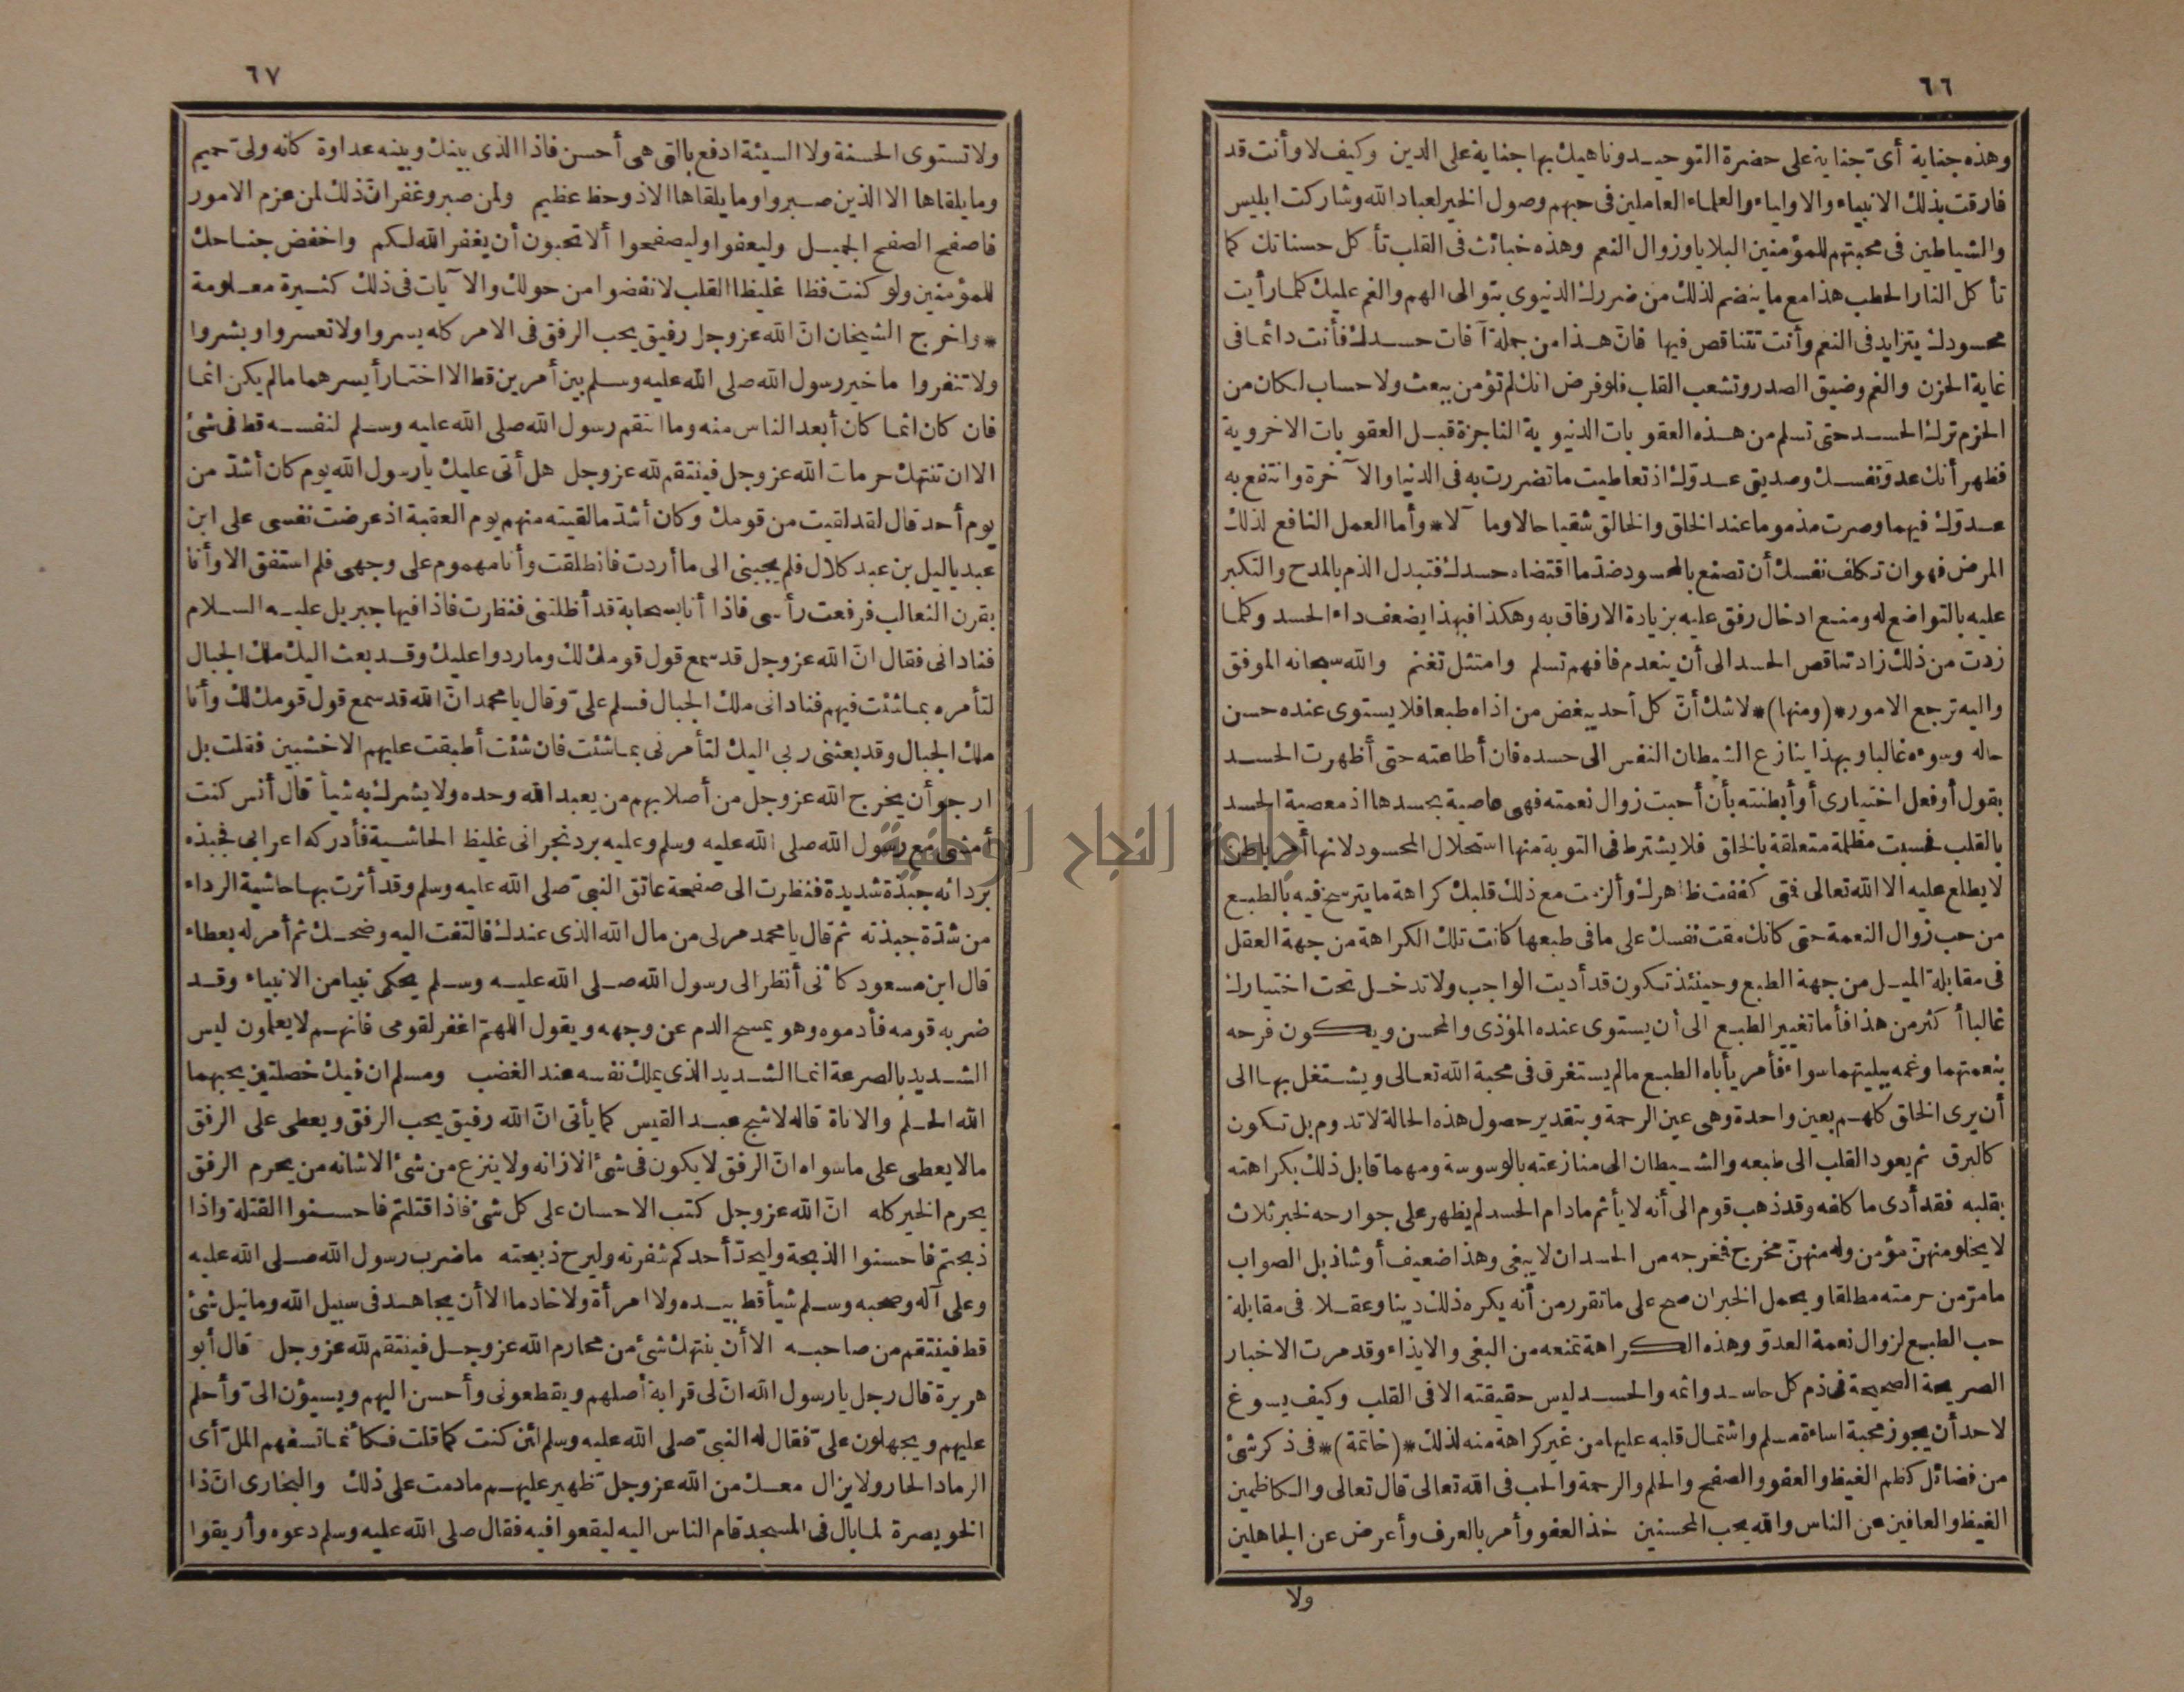 ٦٦
وهذه جناية أىّ جناية على حضرة التوحيد وناهيك بها جناية على الدين وكيف لا وأنت قد
فارقت بذلك الانبياء والاولياء والعلماء العاملين فى حبهم وصول الخير لعباد الله وشاركت ابليس
والشياطين فى محبتهم للمؤمنين البلايا وزوال النعم وهذه خبائث فى القلب تأكل حسناتك كما
تأكل النار الحطب هذا مع ما ينضم لذلك من ضررك الدنيوى بتوالى الهم والغم عليك كلما رأيت
محسودك يتزايد فى النعم وأنت تتناقص فيها فانّ هذا من جملة آفات حسدك فأنت دائما فى
غاية الحزن والغم وضيق الصدر وتشعب القلب فلو فرض انك لم تؤمن ببعث ولا حساب لكان من
الحزم ترك الحسد حتى تسلم من هذه العقوبات الدنيوية الناجزة قبل العقوبات الاخروية
فظهر أنك عدوّ نفسك وصديق عدوّك اذ تعاطيت ما تضررت به فى الدنيا والآخرة وانتفع به
عدوّك فيهما وصرت مذموما عند الخلق والخالق شقيا حالا وما ⁠⁠لا* وأما العمل النافع لذلك
المرض فهو ان تكلف نفسك أن تصنع بالمحسود ضدّ ما اقتضاه حسدك فتبدل الذم بالمدح والتكبر
عليه بالتواضع له ومنع ادخال رفق عليه بزيادة الارفاق به وهكذا فبهذا يضعف داء الحسد وكلما
زدت من ذلك زاد تناقص الحسد الى أن ينعدم فافهم تسلم وامتثل تغنم والله سبحانه الموفق
واليه ترجع الامور*(ومنها)*لا شك أنّ كل أحد يبغض من اذاه طبعا فلا يستوى عنده حسن
حاله وسوءه غالبا وبهذا ينازع الشيطان النفس الى حسده فان أطاعته حتى أظهرت الحسد
بقول أو فعل اختيارى أو أبطنته بأن أحبت زوال نعمته فهى عاصية بحسدها اذ معصية الحسد
بالقلب فحسبت مظلمة متعلقة بالخلق فلا يشترط فى التوبة منها استحلال المحسود لانها أمر باطن
لا يطلع عليه الا الله تعالى فتى كففت ظاهرك وألزمت مع ذلك قلبك كراهة ما يترسخ فيه بالطبع
من حب زوال النعمة حتى كانك مقت نفسك على ما فى طبعها كانت تلك الكراهة من جهة العقل
فى مقابلة الميل من جهة الطبع وحينئذ تكون قد أديت الواجب ولا تدخل تحت اختيارك
غالبا أكثر من هذا فأما تغيير الطبع الى أن يستوى عنده المؤذى والمحسن ويكون فرحه
بنعمتهما وغمه ببليتهما سواء فأمر يأباه الطبع ما لم يستغرق فى محبة الله تعالى ويشتغل بها الى
أن يرى الخلق كلهم بعين واحدة وهى عين الرحمة وبتقدير حصول هذه الحالة لا تدوم بل تكون
كالبرق ثم يعود القلب الى طبعه والشيطان الى منازعته بالوسوسة ومهما قابل ذلك بكراهته
بقلبه فقد أدى ما كلفه وقد ذهب قوم الى أنه لا يأثم مادام الحسد لم يظهر على جوارحه لخبر ثلاث
لا يخلو منهنّ مؤمن وله منهنّ مخرج فمخرجه من الحسد ان لا يبغى وهذا ضعيف أو شاذ بل الصواب
ما مرّ من حرمته مطلقا ويحمل الخبر ان صح على ما تقرر من أنه يكره ذلك دينا وعقلا فى مقابلة
حب الطبع لزوال نعمة العدوّ وهذه الكراهة تمنعه من البغى والايذاء وقد مرت الاخبار
الصريحة الصحيحة فى ذم كل حاسد واثمه والحسد ليس حقيقته الا فى القلب وكيف يسوغ
لاحد أن يجوز محبة اساءة مسلم واشتمال قلبه عليها من غير كراهة منه لذلك*(خاتمة)*فى ذكر شئ
من فضائل كظم الغيظ والعفو والصفح والحلم والرحمة والحب فى الله تعالى قال تعالى والكاظمين
الغيظ والعافين عن الناس والله يحب المحسنين خذ العفو وأمر بالعرف وأعرض عن الجاهلين
ولا
٦٧
ولا تستوى الحسنة ولا السيئة ادفع بالتى هى أحسن فاذا الذى بينك وبينه عداوة كانه ولىّ حميم
وما يلقاها الا الذين صبروا وما يلقاها الا ذو حظ عظيم ولمن صبر وغفر انّ ذلك لمن عزم الامور
فاصفح الصفح الجميل وليعفوا وليصفحوا ألا تحبون أن يغفر الله لكم واخفض جناحك
للمؤمنين ولو كنت فظا غليظ القلب لانفضوا من حولك والآيات فى ذلك كثيرة معلومة
*واخرج الشيخان انّ الله عز وجل رفيق يحب الرفق فى الامر كله يسروا ولا تعسروا وبشروا
ولا تنفروا ما خير رسول الله صلى الله عليه وسلم بين أمرين قط الا اختار أيسرهما ما لم يكن اثما
فان كان اثما كان أبعد الناس منه وما انتقم رسول الله صلى الله عليه وسلم لنفسه قط فى شئ
الا ان تنتهك حرمات الله عز وجل فينتقم لله عز وجل هل أتى عليك يا رسول الله يوم كان أشدّ من
يوم أحد قال لقد لقيت من قومك وكان أشدّ ما لقيته منهم يوم العقبة اذ عرضت نفسى على ابن
عبد ياليل بن عبد كلال فلم يجبنى الى ما أردت فانطلقت وأنا مهموم على وجهى فلم استفق الا وأنا
بقرن الثعالب فرفعت رأسى فاذا أنا بسحابة قد أظلتنى فنظرت فاذا فيها جبريل عليه السلام
فنادانى فقال انّ الله عز وجل قد سمع قول قومك لك وما ردوا عليك وقد بعث اليك ملك الجبال
لتأمره بما شئت فيهم فنادانى ملك الجبال فسلم علىّ وقال يا محمد انّ الله قد سمع قول قومك لك وأنا
ملك الجبال وقد بعثنى ربى اليك لتأمرنى بما شئت فان شئت أطبقت عليهم الاخشبين فقلت بل
ارجو أن يخرج الله عز وجل من أصلابهم من يعبد الله وحده ولا يشرك به شيأ قال أنس كنت
أمشى مع رسول الله صلى الله عليه وسلم وعليه برد نجرانى غليظ الحاشية فأدركه اعرابى فجبذه
بردائه جبذة شديدة فنظرت الى صفحة عاتق النبىّ صلى الله عليه وسلم وقد أثرت بها حاشية الرداء
من شدّة جبذته ثم قال يا محمد مر لى من مال الله الذى عندك فالتفت اليه وضحك ثم أمر له بعطاء
قال ابن مسعود كانى أنظر الى رسول الله صلى الله عليه وسلم يحكى نبيا من الانبياء وقد
ضربه قومه فأدموه وهو يمسح الدم عن وجهه ويقول اللهمّ اغفر لقومى فانهم لا يعلمون ليس
الشديد بالصرعة انما الشديد الذى يملك نفسه عند الغضب ومسلم ان فيك خصلتين يحبهما
الله الحلم والاناة قاله لاشج عبد القيس كما يأتى انّ الله رفيق يحب الرفق ويعطى على الرفق
ما لا يعطى على ما سواه انّ الرفق لا يكون فى شئ الا زانه ولا ينزع من شئ الا شانه من يحرم الرفق
يحرم الخير كله انّ الله عز وجل كتب الاحسان على كل شئ فاذا قتلتم فاحسنوا القتلة واذا
ذبحتم فاحسنوا الذبحة وليحدّ أحدكم شفرته وليرح ذبيحته ما ضرب رسول الله صلى الله عليه
وعلى آله وصحبه وسلم شيأ قط بيده ولا امرأة ولا خادما الا أن يجاهد فى سبيل الله وما نيل شئ
قط فينتقم من صاحبه الا أن ينتهك شئ من محارم الله عز وجل فينتقم لله عز وجل قال أبو
هريرة قال رجل يا رسول الله انّ لى قرابة أصلهم ويقطعونى وأحسن اليهم ويسيؤن الىّ وأحلم
عليهم ويجهلون علىّ فقال له النبىّ صلى الله عليه وسلم لئن كنت كما قلت فكأنما تسفهم الملّ أى
الرماد الحار ولا يزال معك من الله عز وجلّ ظهير عليهم مادمت على ذلك والبخارى انّ ذا
الخويصرة لما بال فى المسجد قام الناس اليه ليقعوا فيه فقال صلى الله عليه وسلم دعوه وأريقوا
جامعة النجاح الوطنية